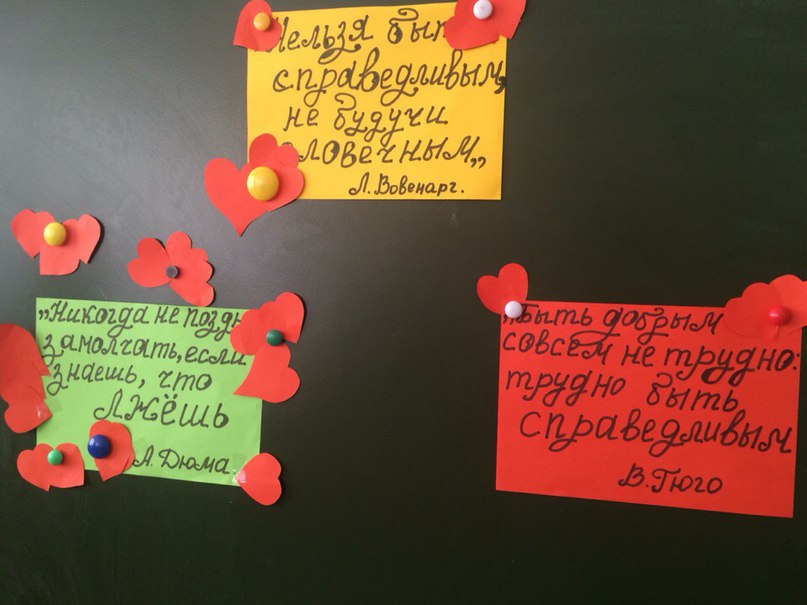 Нельзя быт
справедливым,
не будучи
ловечным„
Л. Вовенарг.
„Никогда не поздн
замолчать, если
знаешь, что
лжёшь
А. Дюма.
„Быть добрым
совсем не трудно:
трудно быть
справедливым
В. Гюго